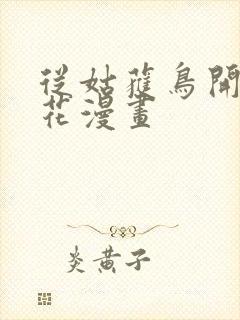 從姑蒦鳥開
花漫畫
炎黃子